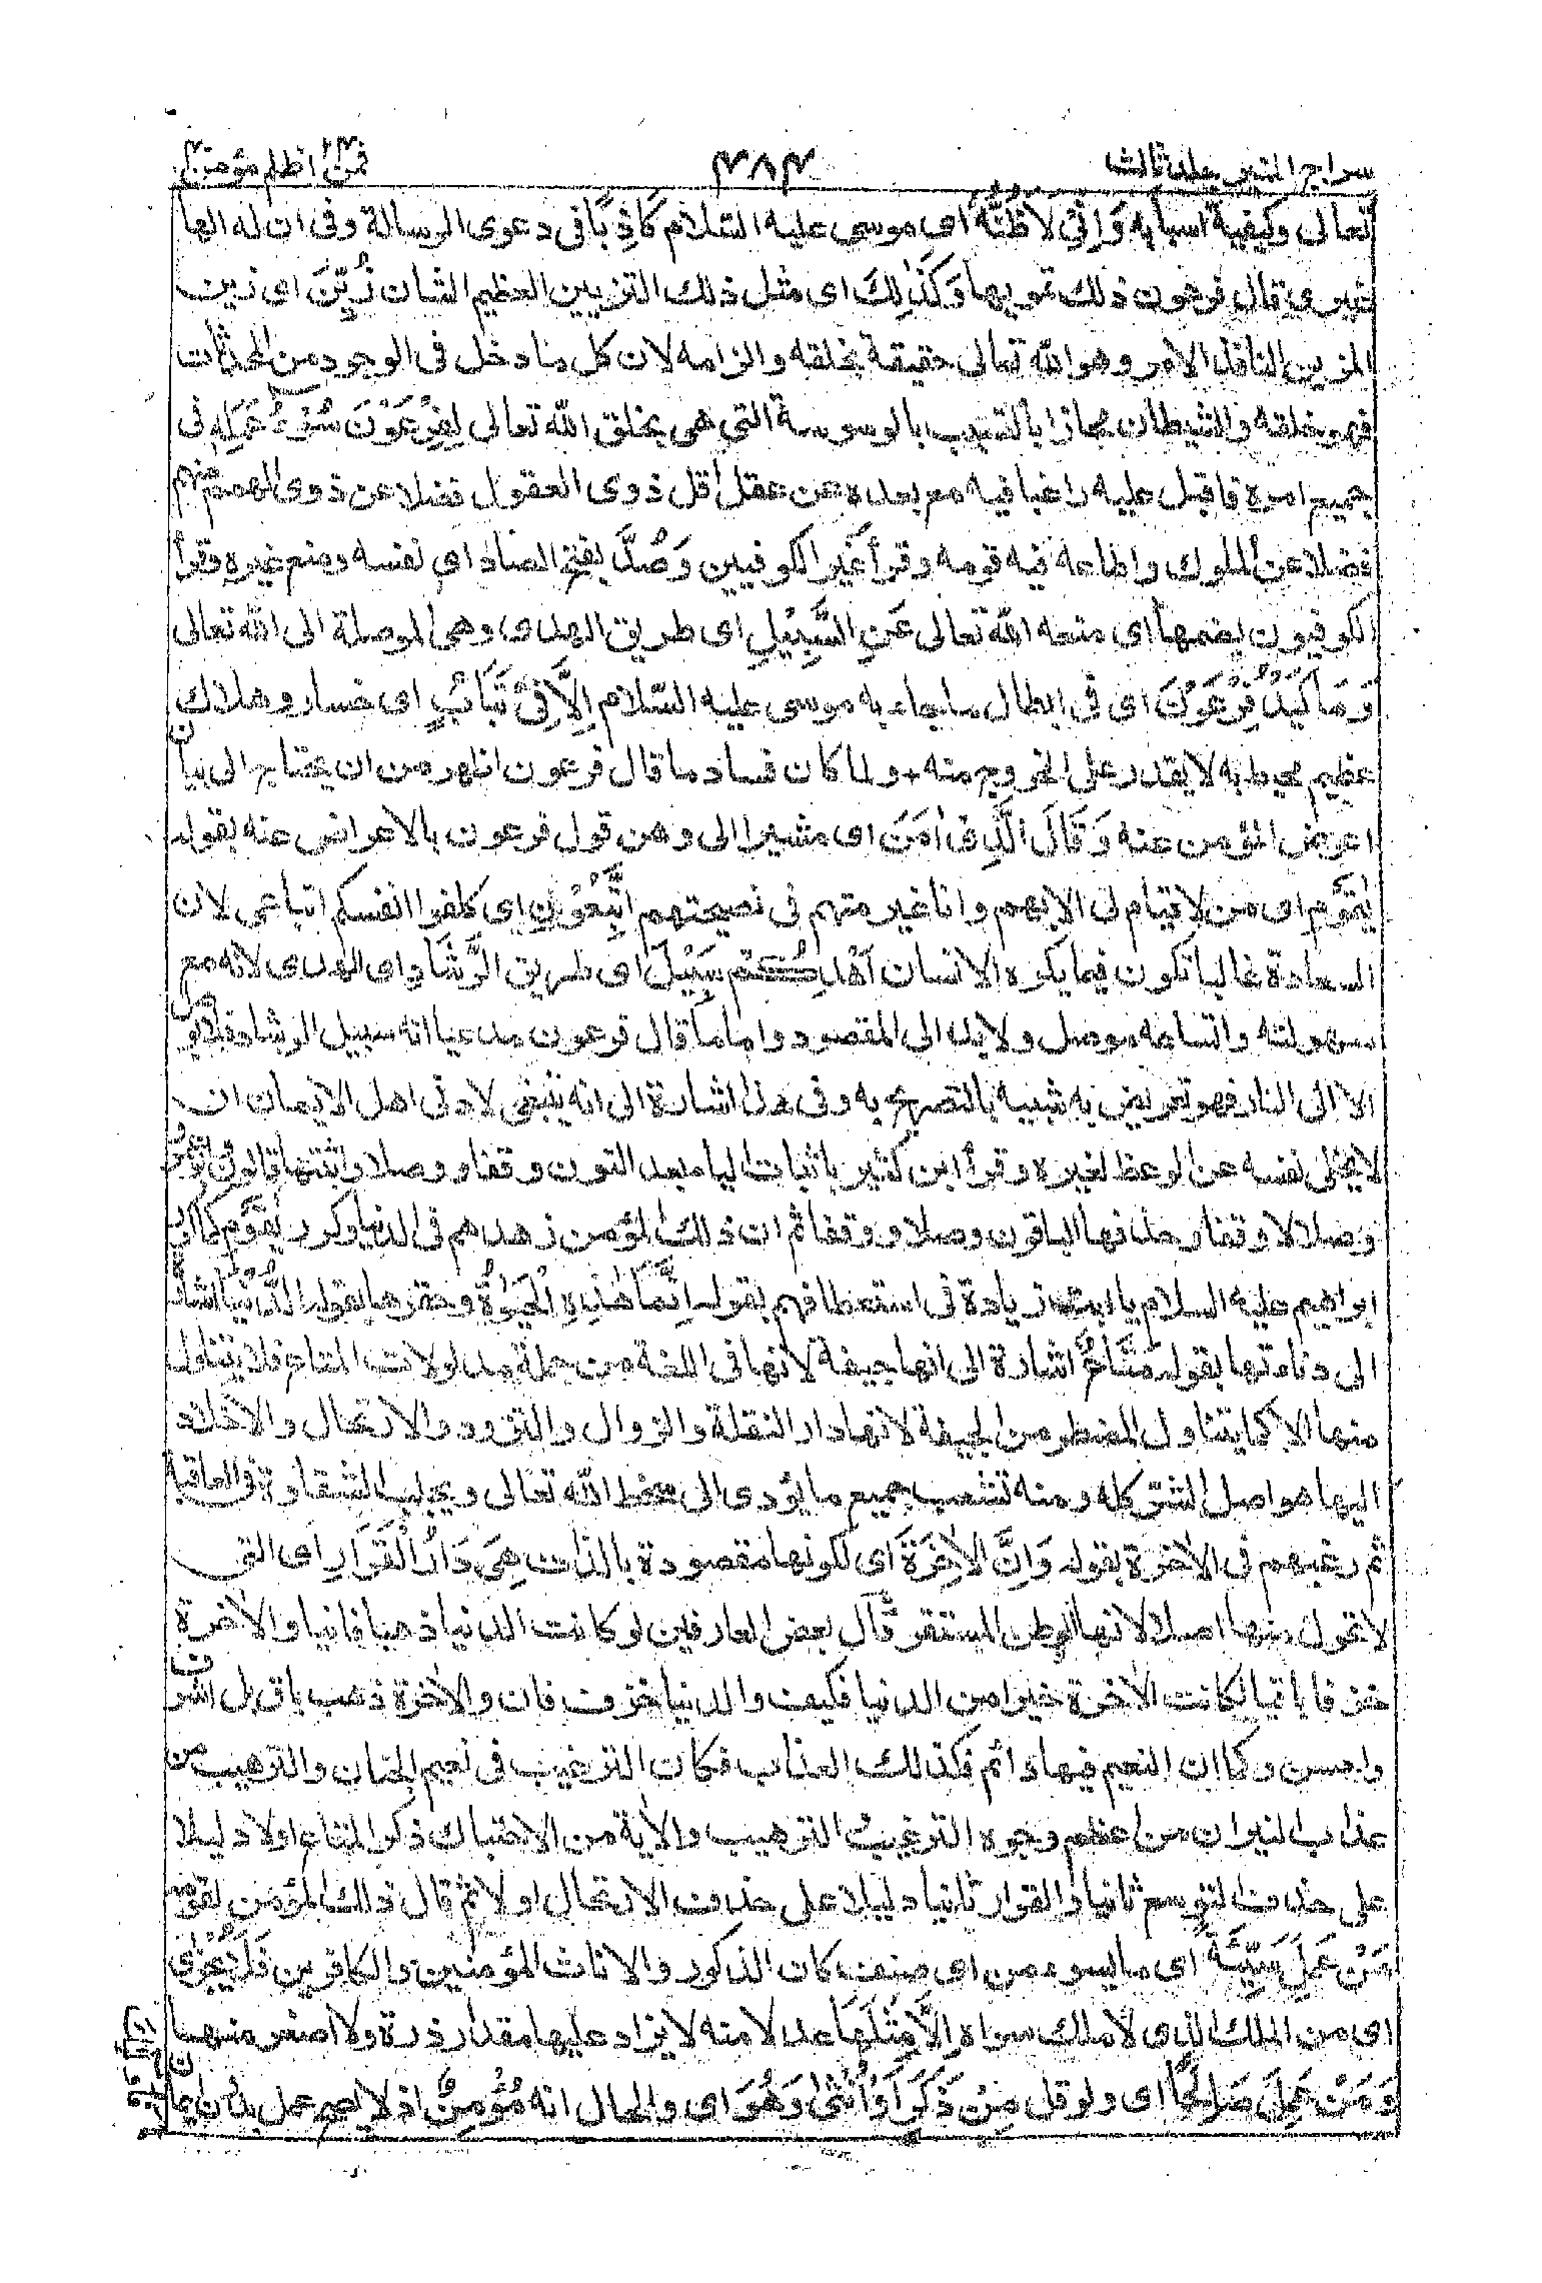 سراج المنير جلد ثالث ۴۸۴ فمن اظلم مؤمن
تعالى وكيفية اسبابه وَاِنِّىْ لَاَظُنُّهٗ اى موسى عليه السّلام كَاذِبًا فى دعوى الرسالة وفى ان له الها
غيرى قال فرعون ذلك تمويها وَكَذٰلِكَ اى مثل ذلك التزيين العظيم الشان زُيِّنَ اى زين
المزين النافذ الامر وهو الله تعالى حقيقة بخلقه والزامه لان كل ما دخل فى الوجود من المحدثات
فهو بخلقه والشيطان مجازا بالتسبب بالوسوسة التى هى بخلق الله تعالى لِفِرْعَوْنَ سُوْٓءُ عَمَلِهٖ فى
جميع امره فاقبل عليه راغبا فيه مع بعده عن عقل اقل ذوى العقول فضلا عن ذوى الهمم منهم
فضلا عن الملوك واطاعه فيه قومه وقرأ غير الكوفيين وَصُدَّ بفتح الصاد اى نفسه ومنع غيره وقرأ
الكوفيون بضمها اى منعه الله تعالى عَنِ السَّبِيْلِ اى طريق الهدى وهى الموصلة الى الله تعالى
وَمَا كَيْدُ فِرْعَوْنَ اى فى ابطال ما جاء به موسى عليه السّلام اِلَّا فِىْ تَبَابٍ اى خسار وهلاك
عظيم محيط به لا يقدر على الخروج منه + ولما كان فساد ما قال فرعون اظهر من ان يحتاج الى بيان
اعرض المؤمن عنه وَقَالَ الَّذِىْٓ اٰمَنَ اى مشيرا الى وهن قول فرعون بالاعراض عنه بقوله
يٰقَوْمِ اى من لا قيام لى الا بهم وانا غير متهم فى نصيحتهم اتَّبِعُوْنِ اى كلفوا انفسكم اتباعى لان
السعادة غالبا تكون فيما يكره الانسان اَهْدِكُمْ سَبِيْلَ اى طريق الرَّشَادِ اى الهدى لانه مع
سهولته واتساعه موصل ولا بد الى المقصود واما ما قال فرعون مدعيا انه سبيل الرشاد فلا يوصل
الا الى النار فهو تعريض به شبيه بالتصريح به وفى هذا اشارة الى انه ينبغى لادنى اهل الايمان ان
لا يخلى نفسه عن الوعظ لغيره وقرأ ابن كثير باثبات اليا بعد النون وقفا ووصلا واثبتها قالون
وصلا لا وقفا وحذفها الباقون وصلا ووقفا ثم ان ذلك المؤمن زهدهم فى الدنيا وكرر يٰقَوْمِ كما كرر
ابراهيم عليه السلام يا ابت زيادة فى استعطافهم بقوله اِنَّمَا هٰذِهِ الْحَيٰوةُ وحقرها بقوله الدُّنْيَا اشارة
الى دناءتها بقوله مَتَاعٌ اشارة الى انها جيفة لانها فى اللغة من جملة مدلولات المتاع فلا يتناول
منها الا كما يتناول المضطر من الجيفة لانها دار النقلة والزوال والتزود والارتحال والاخلاد
اليها هو اصل الشر كله ومنه تشعب جميع ما يؤدى الى سخط الله تعالى ويجلب الشقاوة فى العاقبة
ثم رغبهم فى الاخرة بقوله وَاِنَّ الْاٰخِرَةَ اى لكونها مقصودة بالذات هِىَ دَارُ الْقَرَارِ اى التى
لا تحول منها اصلا لانها الوطن المستقر قال بعض العارفين لو كانت الدنيا ذهبا فانيا والاٰخرة
خزفا باقيا لكانت الاٰخرة خيرا من الدنيا فكيف والدنيا خزف فان والاٰخرة ذهب باق بل اشرف
واحسن وكما ان النعيم فيها دائم فكذلك العذاب فكان الترغيب فى نعيم الجنان والترهيب من
عذاب النيران من اعظم وجوه الترغيب والترهيب والاٰية من الاحتباك ذكر المتاع اولا دليلا
على حذف التوسع ثانيا والقرار ثانيا دليلا على حذف الارتحال اولا ثم قال ذلك المؤمن لقومه
مَنْ عَمِلَ سَيِّئَةً اى ما يسوء من اى صنف كان الذكور والاناث المؤمنين والكافرين فَلَا يُجْزٰٓى
اى من الملك الذى لا ملك سواه اِلَّا مِثْلَهَا عدلا منه لا يزاد عليها مقدار ذرة ولا اصغر منها
وَمَنْ عَمِلَ صَالِحًا اى ولو قل مِّنْ ذَكَرٍ اَوْ اُنْثٰى وَهُوَ اى والحال انه مُؤْمِنٌ اذ لا يصح عمل بدون ايمان